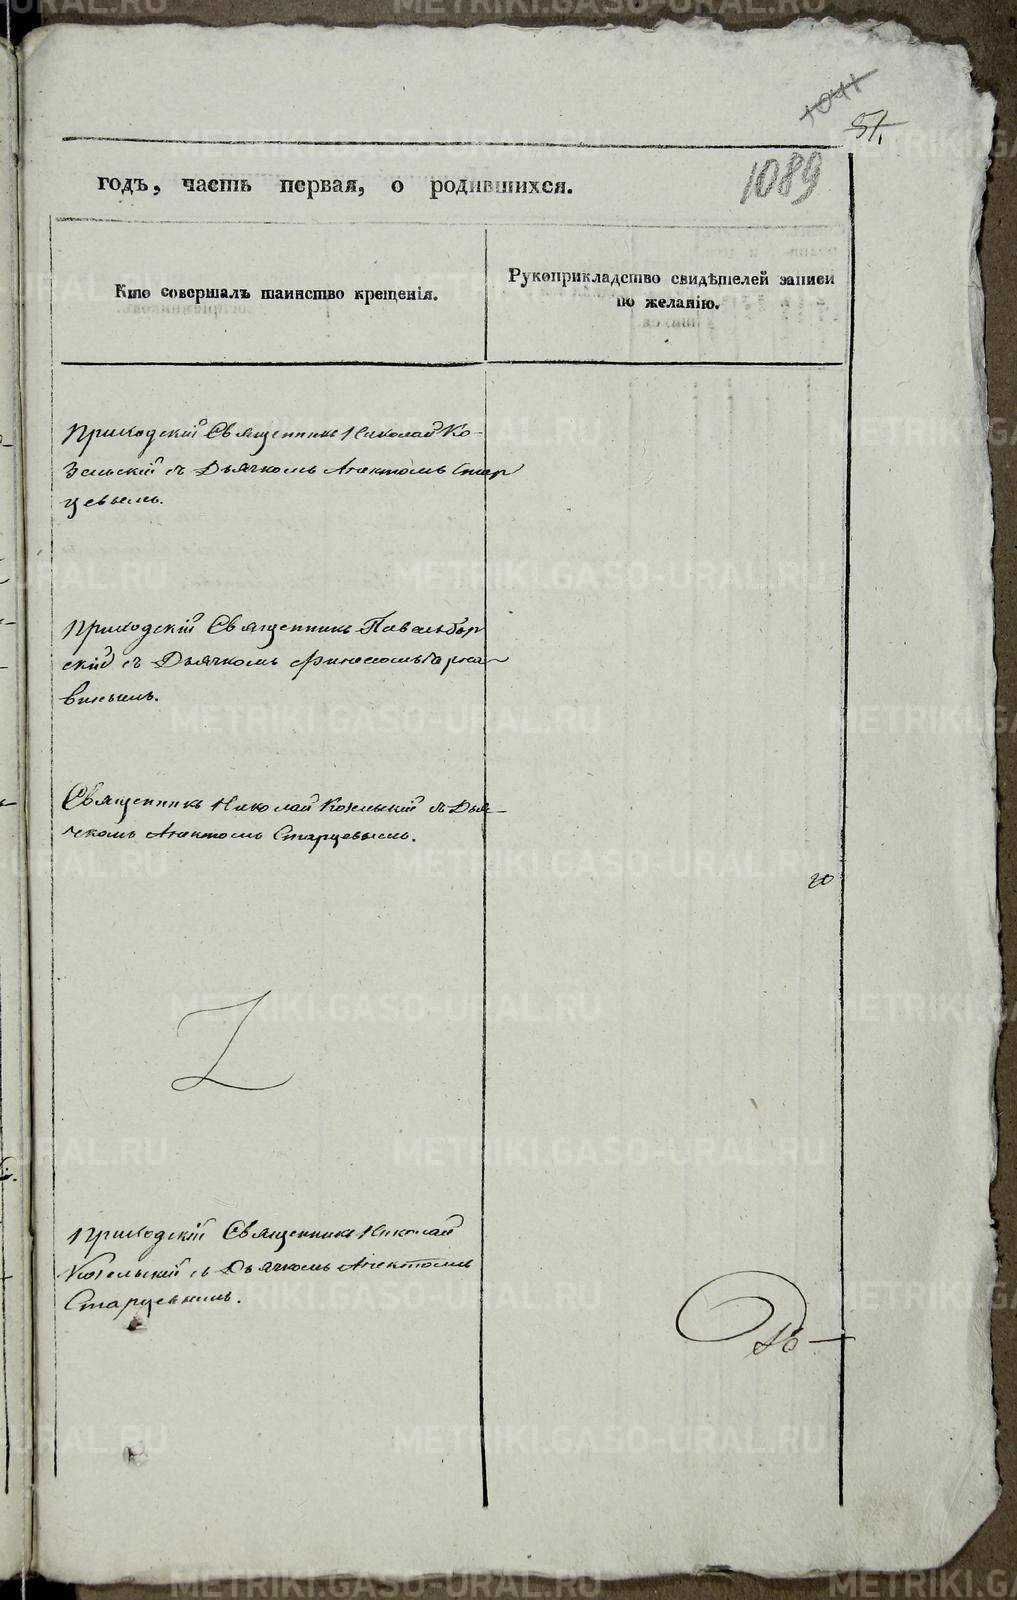 1041
51.
1089
годъ, часть первая, о родившихся.
Кто совершалъ таинство крещенія.
Рукоприкладство свидѣтелей записи
по желанію.
Приходскій Священникъ Николай Ко-
зельскій съ Дьячкомъ Аректомъ Стар
цевымъ.
Приходскій Священникъ Павелъ
скій съ Дьячкомъ
винымъ.
Священникъ Николай Козельскій съ Дья-
чкомъ Аректомъ Старцевымъ.
Приходскій Священникъ Николай
Козельскій съ Дьячкомъ Аректомъ
Старцевымъ.
METRIKI.GASO-URAL.RU